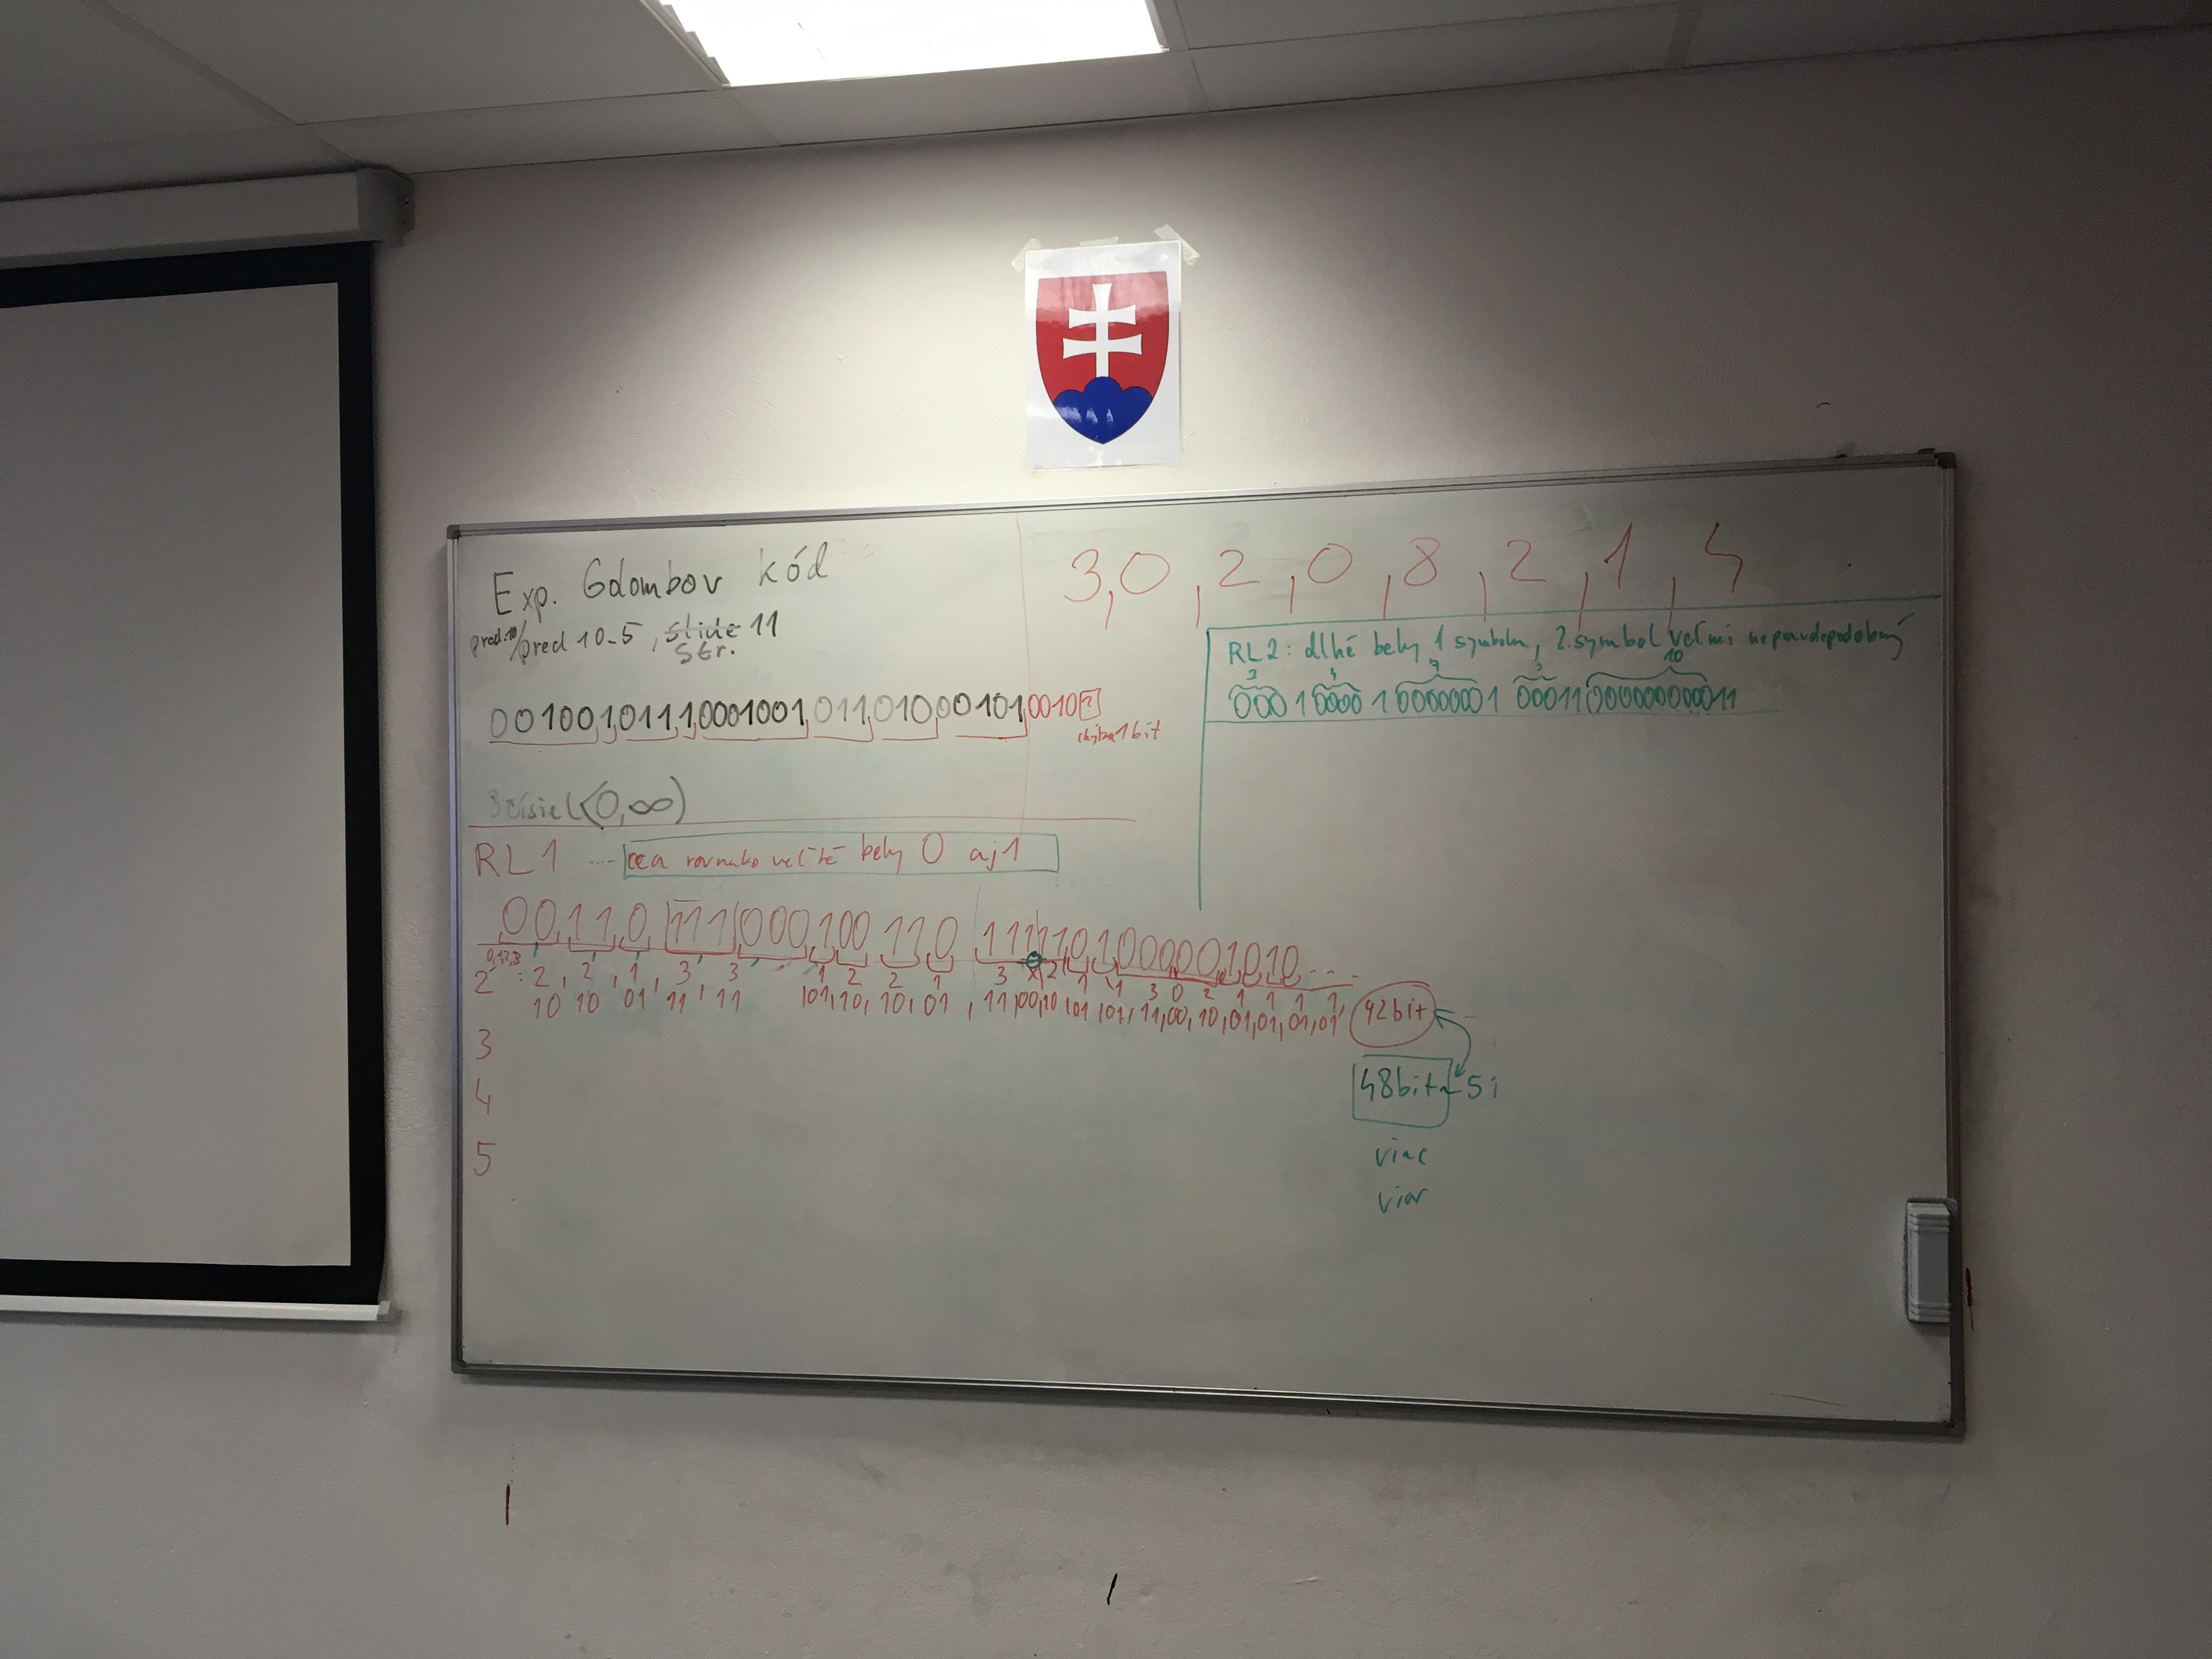 Exp. Golombov kód
pred.10/pred 10-5, slide 11
str.
001001011110001001011010000101 0010?
chýba 1 bit
8 čísiel <0,∞)
3,0,2,0,8,2,1,4
RL2: dlhé behy 1 symbolu, 2. symbol veľmi nepravdepodobný
3 4 7 3 10
000 1 0000 1 0000000 1 00011 000000000011
RL1 .... cca rovnako veľké behy 0 aj 1
00110 111 000100 110 11111010000001010...
0,1,2,3
2 : 2, 2, 1, 3, 3 1 2 2 1 3 x 2 1 1 3 0 2 1 1 1 1,
10 10 01, 11, 11 01, 10, 10, 01, 11, 00, 10, 01 01, 11, 00, 10, 01, 01, 01, 01 42bit
3
4
5
48bit 5i
viac
viac